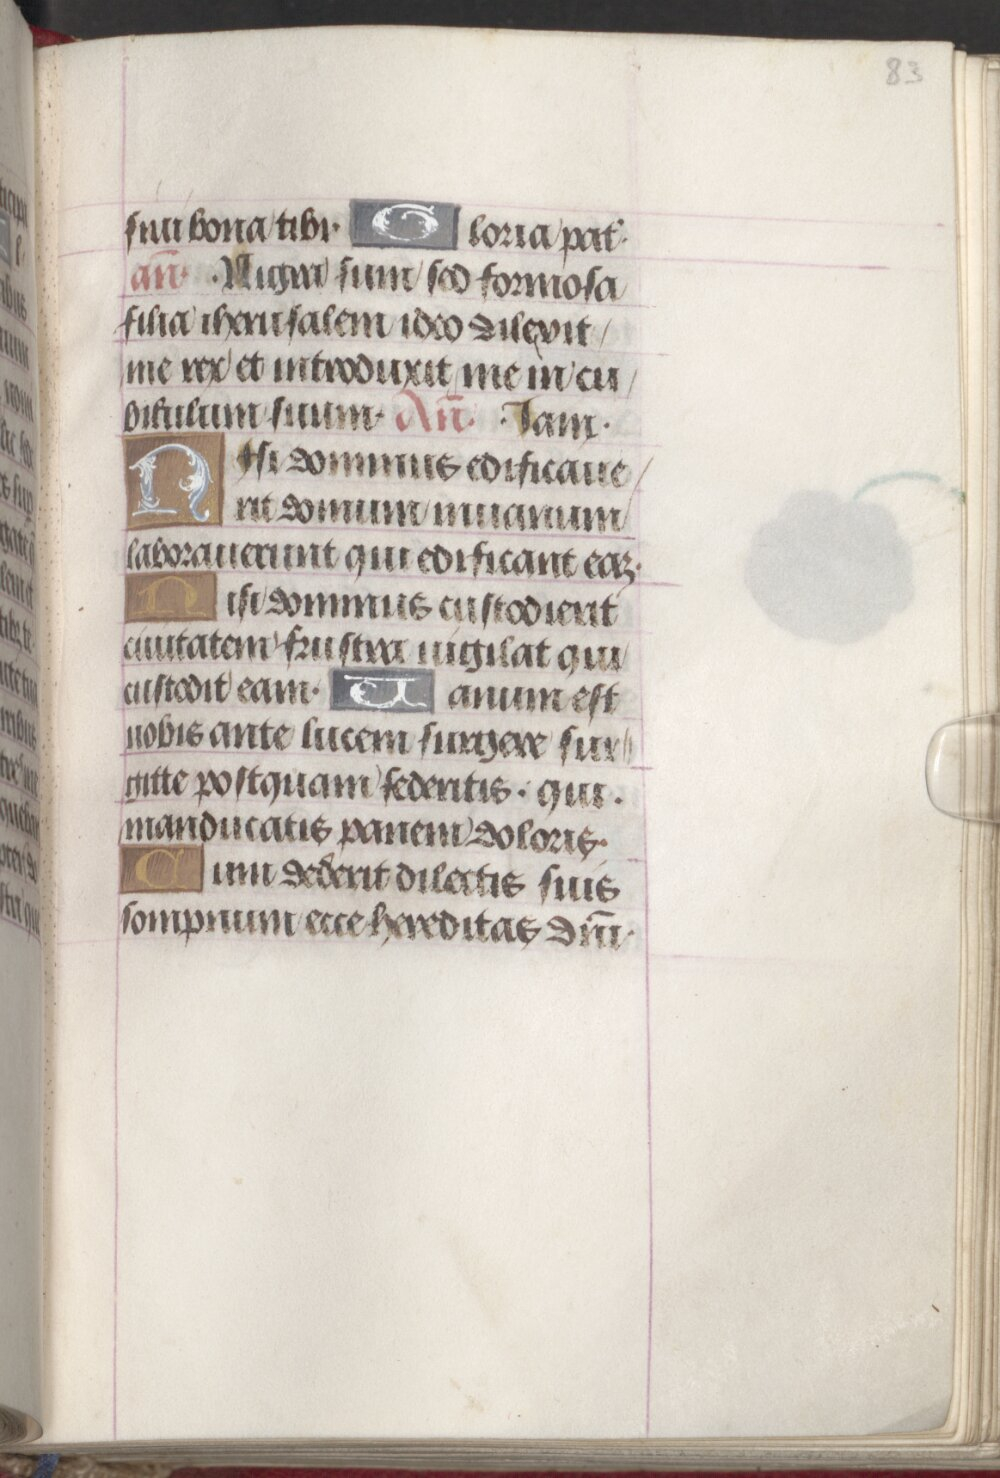 83
siui bona tibi· Gloria pat̃·
añ· ·Nigra sum sed formosa
filia iherusalem ideo dilexit
me rex et introduxit me in cu
biculum suum· Añ· ·Iam·
Nisi dominus edificaue
rit domum in uanum
laborauerunt qui edificant eaʒ·
Nisi dominus custodierit
ciuitatem frustra uigilat qui
custodit eam· Uanum est
uobis ante lucem surgere sur
gitte postquam sederitis· qui·
manducatis panem doloris·
Cum dederit dilectis suis
sompnum ecce hereditas dñi·